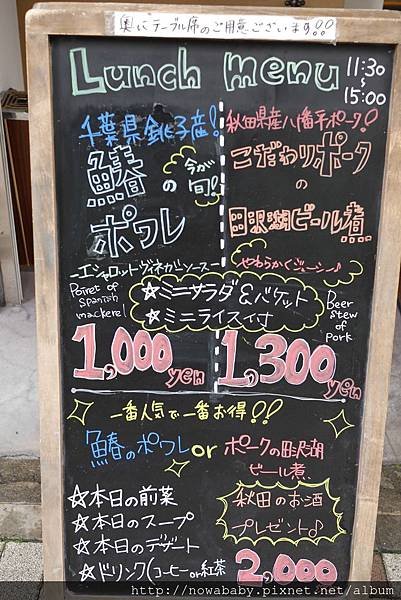 奥にテーブル席のご用意ございます!!
Lunch menu 11:30~15:00
千葉県銚子産!
鰆の
今が旬!
ポワレ
-エシャロットヴィネガーソース-
Poiret of Spanish mackerel
秋田県産八幡平ポーク!
こだわりポーク
の
田沢湖ビール煮
やわらかくジューシー♪
Beer stew of Pork
☆ミニサラダ&バケット
☆ミニライス付
1,000 yen
1,300 yen
一番人気で一番お得!!
鰆のポワレ or ポークの田沢湖ビール煮
☆本日の前菜
☆本日のスープ
☆本日のデザート
☆ドリンク(コーヒー or 紅茶
秋田のお酒
プレゼント♪
2,000
http://nowababy.pixnet.net/album